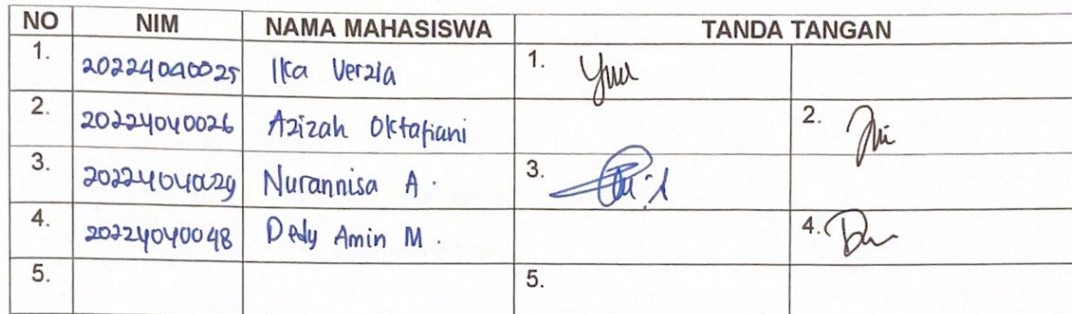 NO NIM NAMA MAHASISWA TANDA TANGAN
1. 20224040025 Ika Verzia 1.
2. 20224040026 Azizah Oktafiani 2.
3. 20224040029 Nurannisa A. 3.
4. 20224040048 Dedy Amin M. 4.
5. 5.